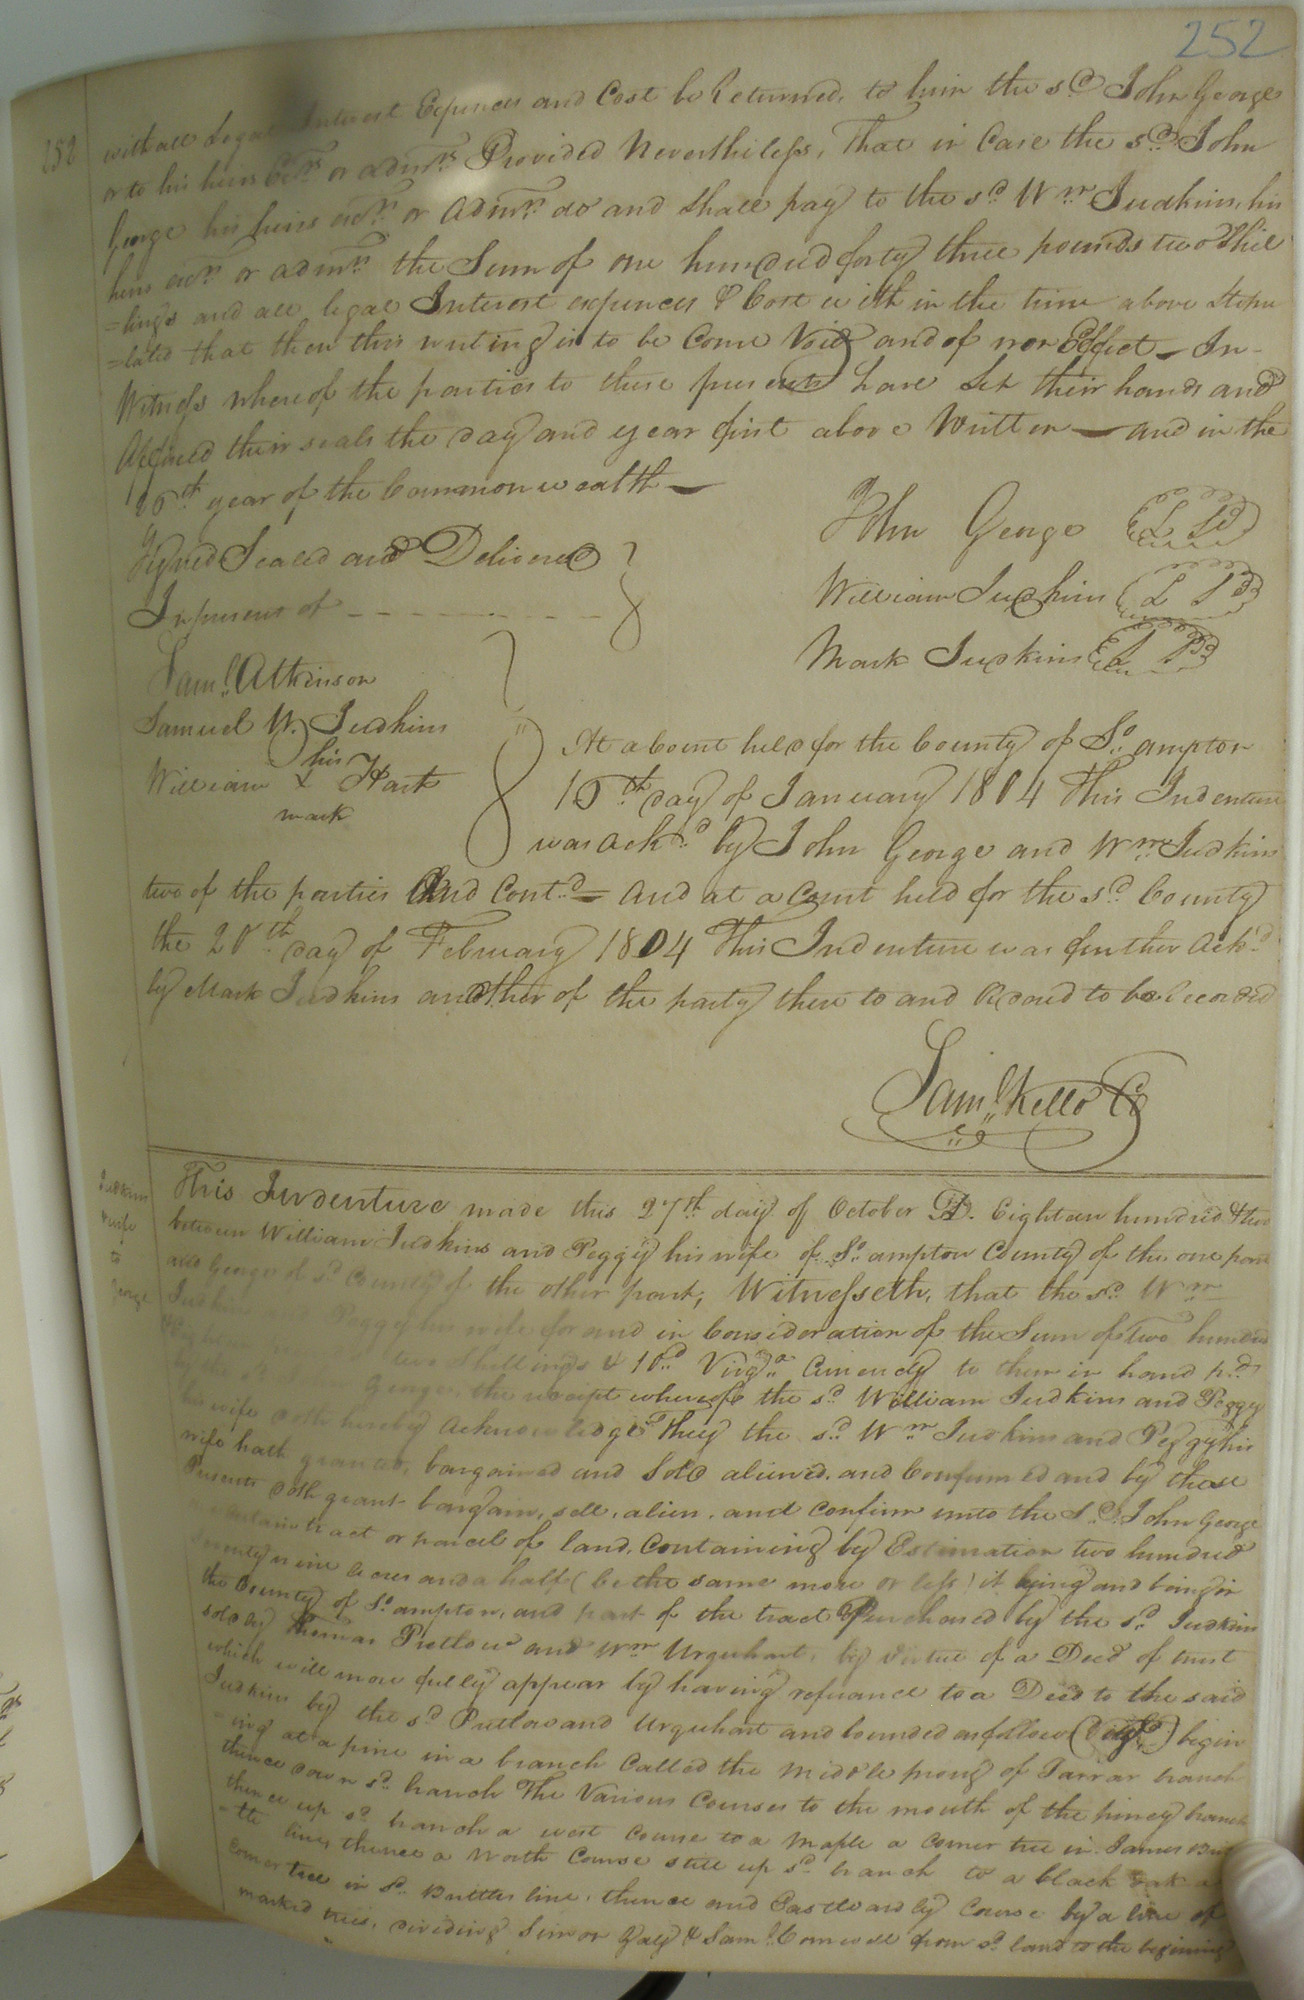 252
252
with all Legal Interest Expences and Cost be Returned, to him the sd. John George
or to his heirs Exrs. or admrs. Provided Nevertheless, That in Case the sd. John
George his heirs exrs. or Admrs. do and Shall pay to the sd. Wm. Judkins, his
heirs exrs. or admrs. the Sum of one hundred forty three pounds two Shil
=lings and all legal Interest expences & Cost with in the time above Stipu
=lated that then this writing is to be Come Void and of non Effect – In-
Witness whereof the parties to these presents have Set their hands and
Affixed their seals the day and year first above Written — and in the
year of the Commonwealth —
Signed Sealed and Delivered
In presens of
John George L Sd
William Judkins L Sd
Mark Judkins L Sd
Saml. Atkinson
Samuel W. Judkins
his
William x Hart
mark
At a Court held for the County of So. ampton
16th. day of January 1804 This Indenture
was Ackd. by John George and Wm. Judkins
two of the parties And Contd. = And at a Court held for the sd. County
the 20th. day of February 1804 This Indenture was further Ackd.
by Mark Judkins another of the party there to and Ordered to be Recorded
Saml. Kello Co
Judkins
& wife
to
George
This Indenture made this 27th. day of October AD. Eighteen hundred & two
between William Judkins and Peggy his wife of So. ampton County of the one part
and George of sd. County of the other part; Witnesseth, that the sd. Wm.
Judkins Peggy his wife for and in Consideration of the Sum of Two hundred
two Shillings & 10d. Virga. Currency to them in hand pd.
by the sd. George, the receipt whereof the sd. William Judkins and Peggy
his wife doth hereby Acknowledge They the sd. Wm. Judkins and Peggy his
wife hath granted, bargained and Sold aliened, and Confirmed and by these
Presents doth grant bargain, sell, alien, and Confirm unto the Sd. John George
a certain tract or parcel of land, Containing by Estimation two hundred
seventy nine Acres and a half (be the same more or less) it lying and being in
the County of So. ampton, and part of the tract Purchased by the sd. Judkins
sold by Thomas Pretlow and Wm. Urquhart, by virtue of a Deed of trust
which will more fully appear by having referance to a Deed to the said
Judkins by the sd. Pretlow and Urquhart and bounded as follow (Viz) begin
=ing at a pine in a branch Called the middle prong of Tarrar branch
thence down sd. branch The Various Courses to the mouth of the piney branch
thence up sd. branch a west Course to a Maple a Corner tree in James Brit
=tle line, thence a North Course still up sd. branch to a black oak a
Corner tree in sd. Brittles line, thence and Eastwardly Course by a line of
marked trees, dividing Simon Gay & Saml. Cornwell from sd. land to the beginning